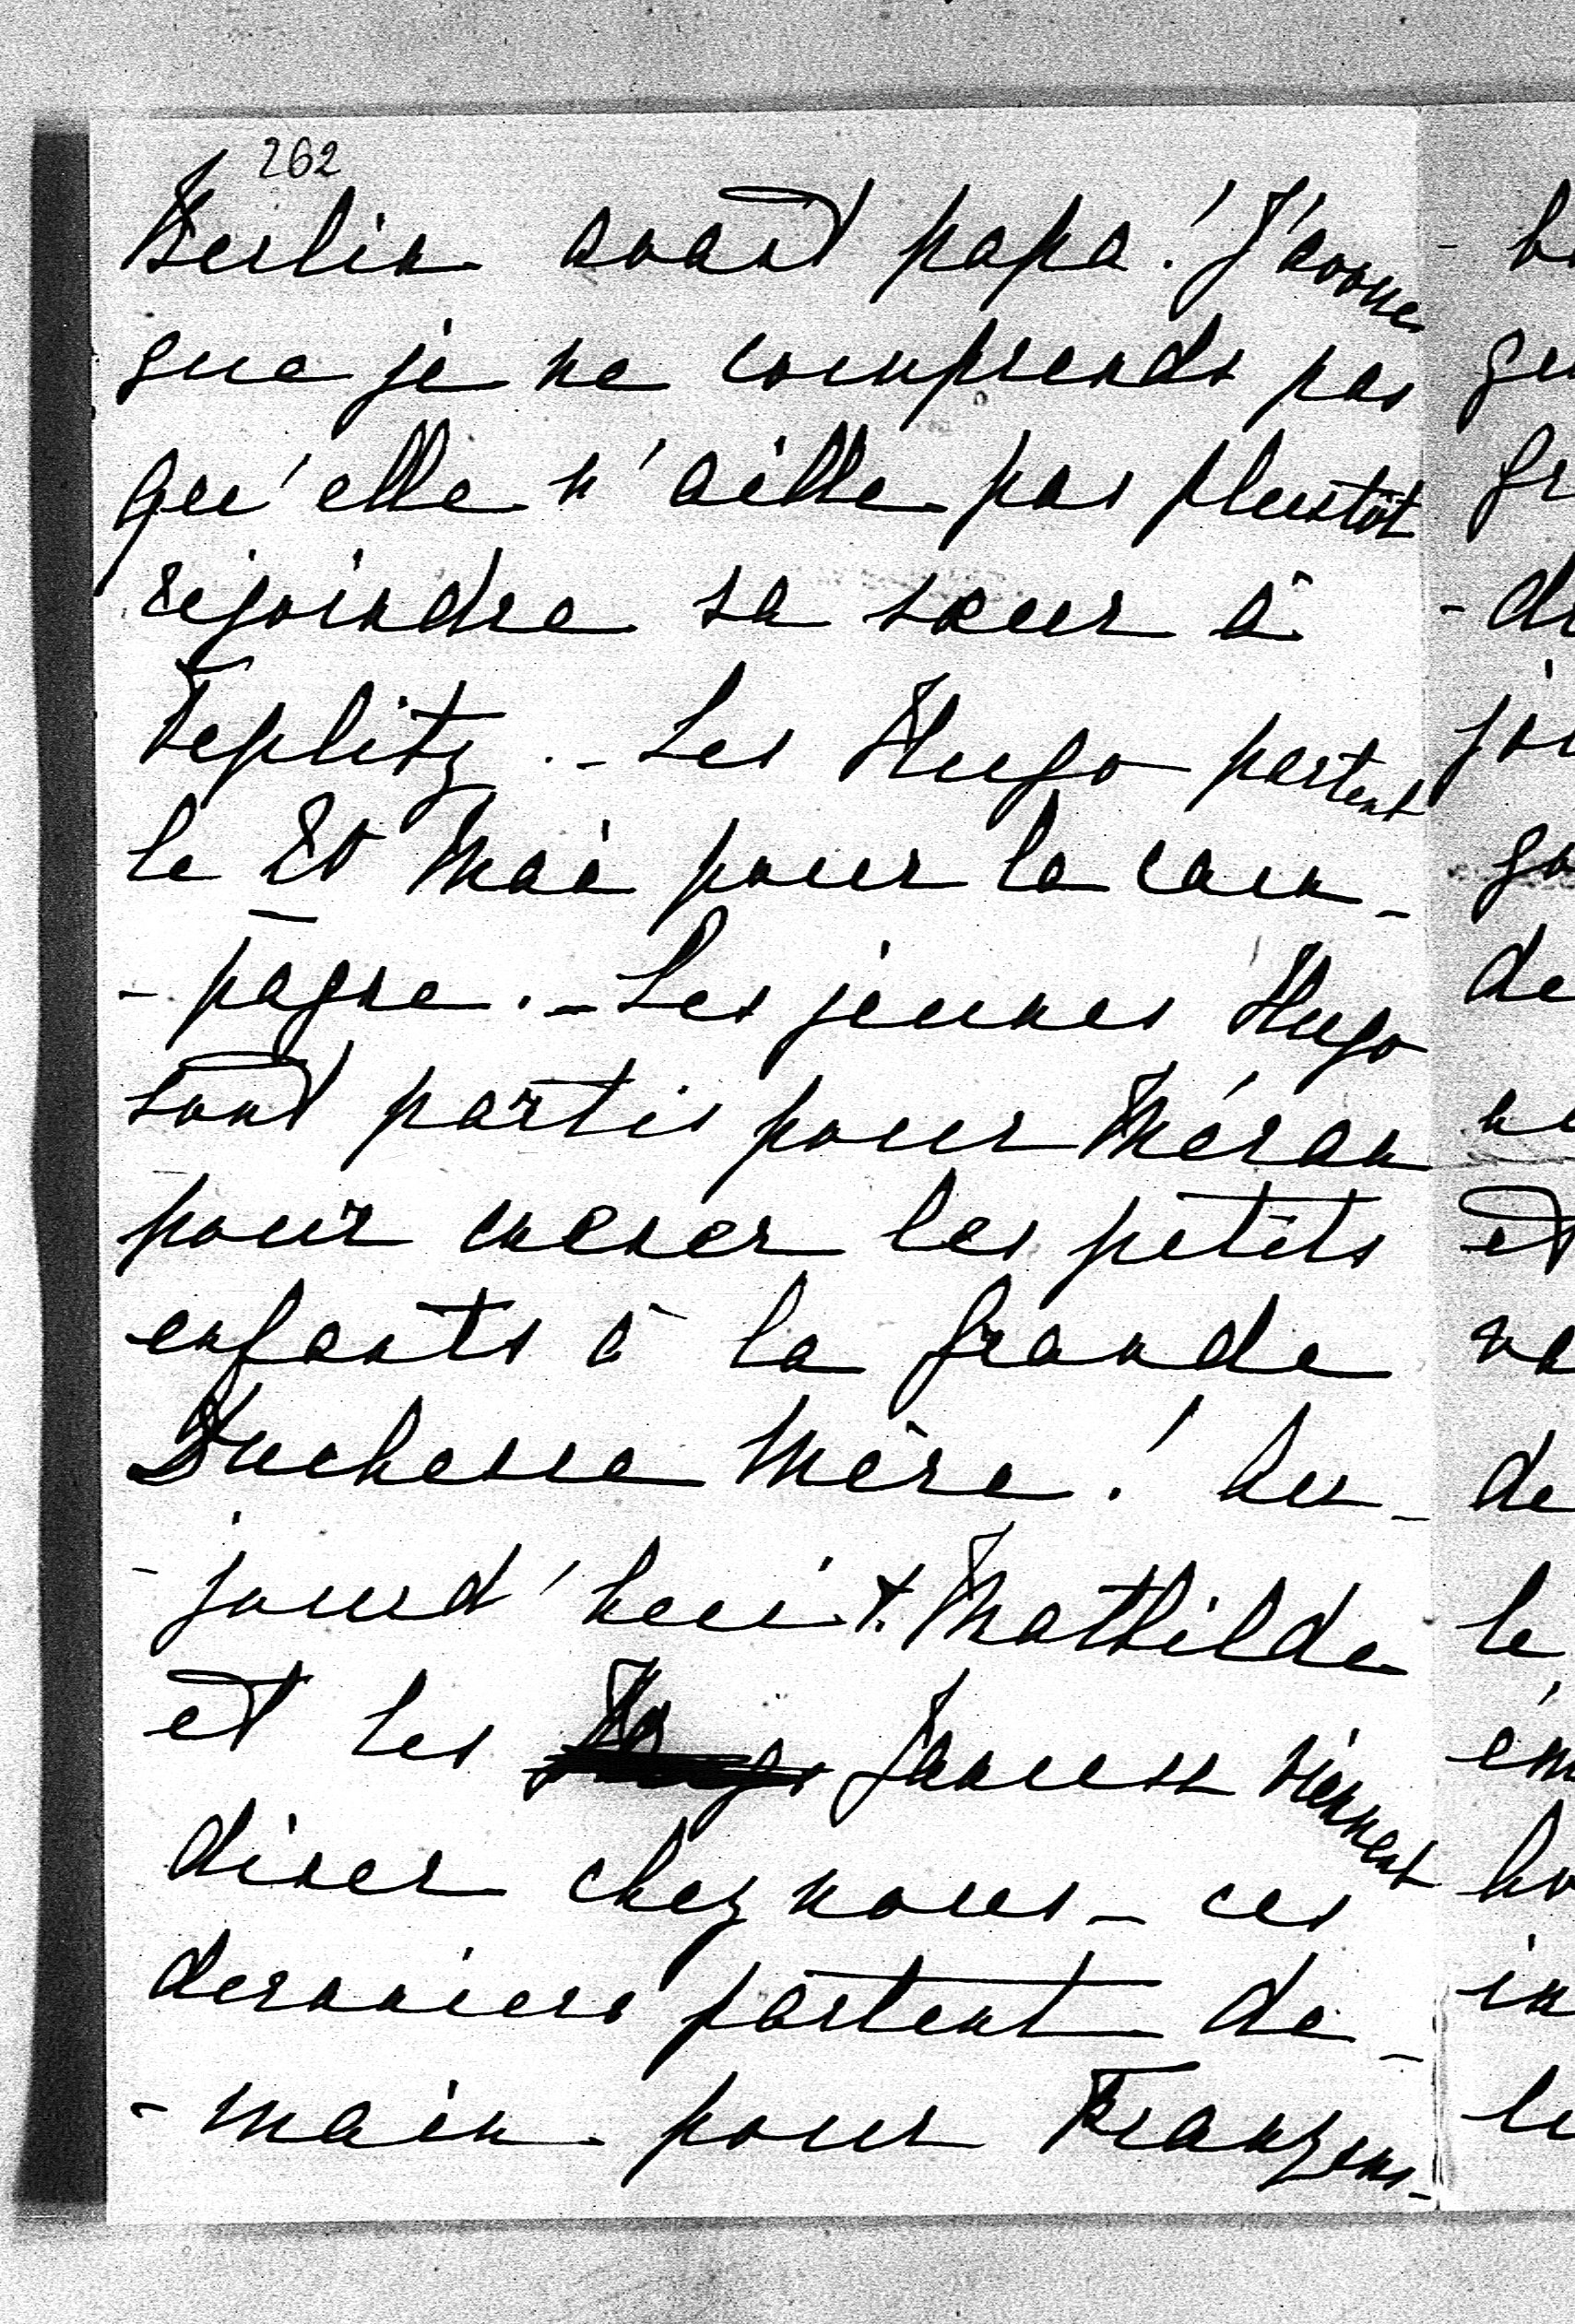 262
Berlin avant papa! J'avoue
que je ne comprends pas
qu'elle n'aille pas plustôt
rejoindre sa sœur à
Teplitz. - Les Hugo partent
le 20 Mai pour la cam-
- pagne. - Les jeunes Hugo
sont partis pour Méran
pour mener les petits
enfants à la Grande
Duchesse Mère! Au-
- jourd'hui t. Mathilde
et les Hugo viennent
diner chez nous - ces
derniers partent de-
- main pour Franzens-